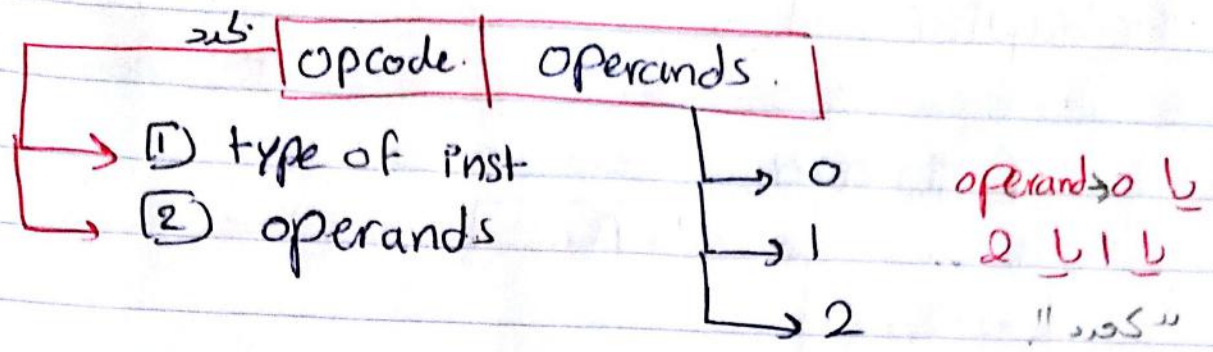 يحدد opcode. operands.
① type of inst → 0 operand→0 يا
② operands → 1 2 يا 1 يا
→ 2 "كود"